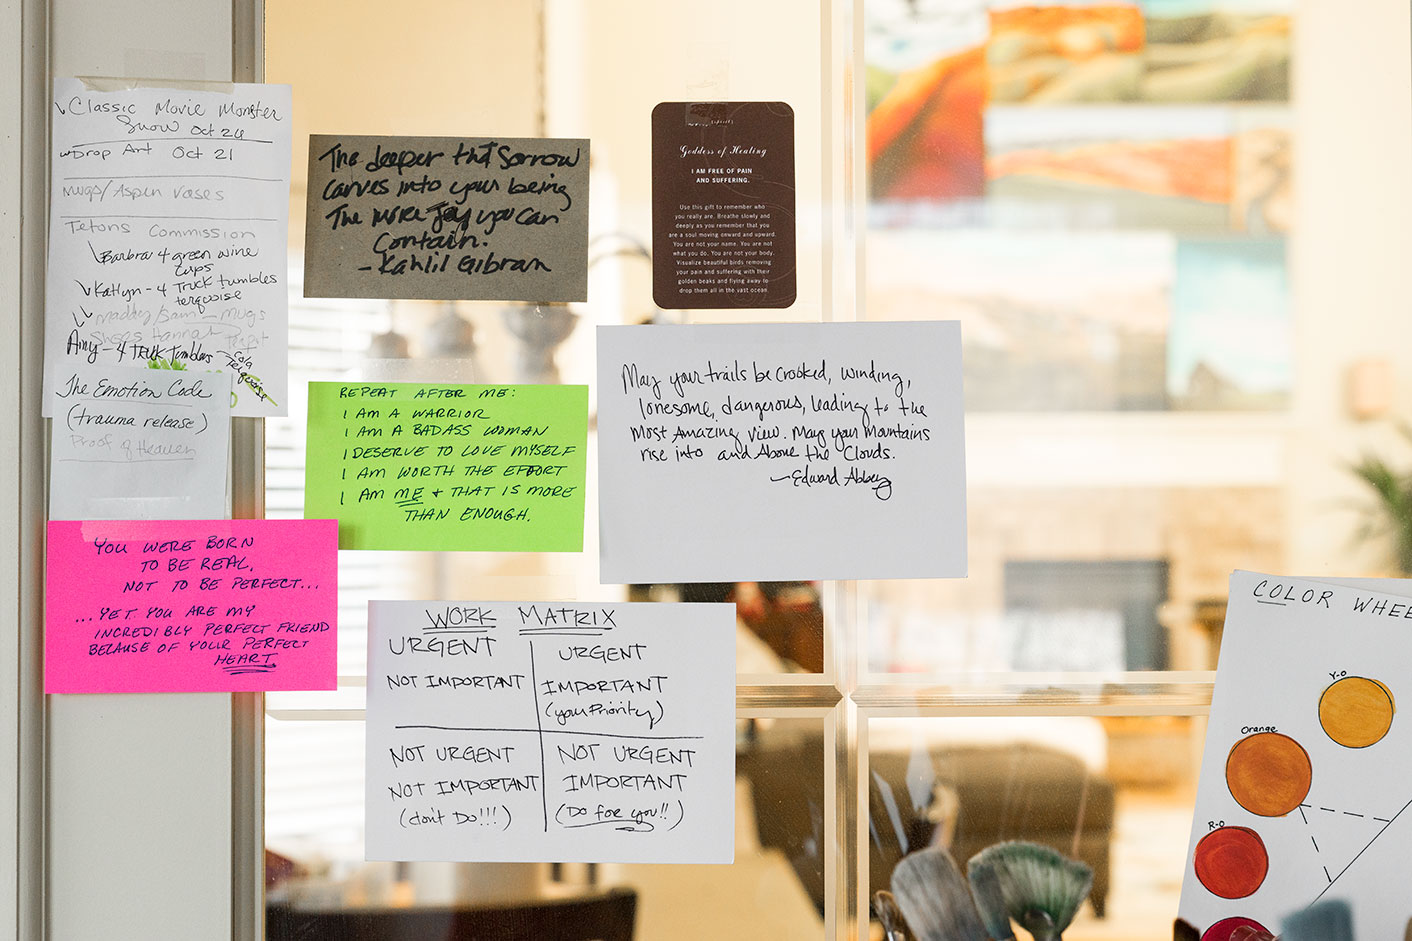 Classic Movie Monster
Show Oct 26
Drop Art Oct 21
Mugs/Aspen Vases
Tetons Commission
Barbra 4 green wine
cups
Katlyn - 4 Truck tumbles
terquoise
Maddy/Sam - Mugs
Shoes Hannah
Amy - 4 Truck Tumblers
Terquoise
The Emotion Code
(trauma release)
Proof of Heaven
YOU WERE BORN
TO BE REAL,
NOT TO BE PERFECT...
...YET YOU ARE MY
INCREDIBLY PERFECT FRIEND
BECAUSE OF YOUR PERFECT
HEART
The deeper that Sorrow
carves into your being
The more Joy you can
Contain.
- Kahlil Gibran
REPEAT AFTER ME:
I AM A WARRIOR
I AM A BADASS WOMAN
I DESERVE TO LOVE MYSELF
I AM WORTH THE EFFORT
I AM ME + THAT IS MORE
THAN ENOUGH.
Goddess of Healing
I AM FREE OF PAIN
AND SUFFERING.
Use this gift to remember who
you really are. Breathe slowly and
deeply as you remember that you
are a soul moving onward and upward.
You are not your name. You are not
what you do. You are not your body.
Visualize beautiful birds removing
your pain and suffering with their
golden beaks and flying away to
drop them all in the vast ocean.
May your trails be crooked, winding,
lonesome, dangerous, leading to the
Most Amazing view. May your Mountains
rise into and Above the Clouds.
- Edward Abbey
WORK MATRIX
URGENT
NOT IMPORTANT
URGENT
IMPORTANT
(your Priority)
NOT URGENT
NOT IMPORTANT
(don't Do!!!)
NOT URGENT
IMPORTANT
(Do for you!!)
COLOR WHEE
Y-O
Orange
R-O